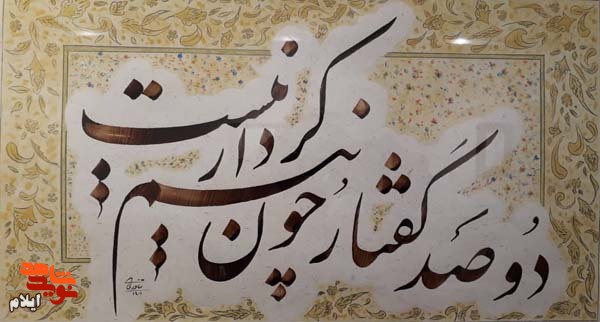 دو صد گفتار چون نیم کردار نیست
نوید شاهد
ایلام